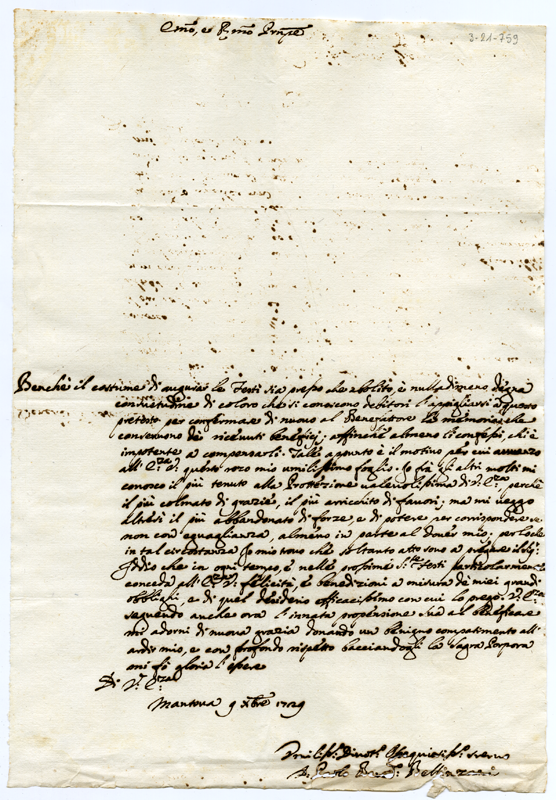 3-21-759
Benchè il costume di augurar le Feste sia presso che abolito, è nulladimeno degna
consuetudine di coloro che si conoscono debitori l'appigliarsi a questo
pretesto per confirmar di nuovo al Benefatore la memoria che
conservono dei ricevuti beneficj; affinchè almeno si confessi, chi è
impotente a compensarli. Tale appunto è il motivo per cui
all' questo roco mio umilissimo foglio. Io frà gli altri molti mi
conosco il più tenuto alla Protezzione valevolissima di V. perchè
il più colmato di grazie, il più arricchito di favori; ma mi veggo
il più abbandonato di forze, e di potere, per corrispondere se
non con eguaglianza, almeno in parte al dover mio; per loche
in tal circostanza Io mi trovo che soltanto atto sono a
Iddio che in ogni tempo, e nelle prossime Feste particolarmente
conceda all' felicità, e benedizioni a misura de miei grandi
obblighi, e di quel desiderio officacissimo con cui la prego
seguendo anche ora l'innata propensione sua al beneficare
mi adorni di nuova grazia donando un benigno compatimento all'
ardir mio, e con profondo rispetto bacciandogli la Sagra Porpora
mi fò gloria l'essere
Di V.
Mantova 9 Xbre 1729